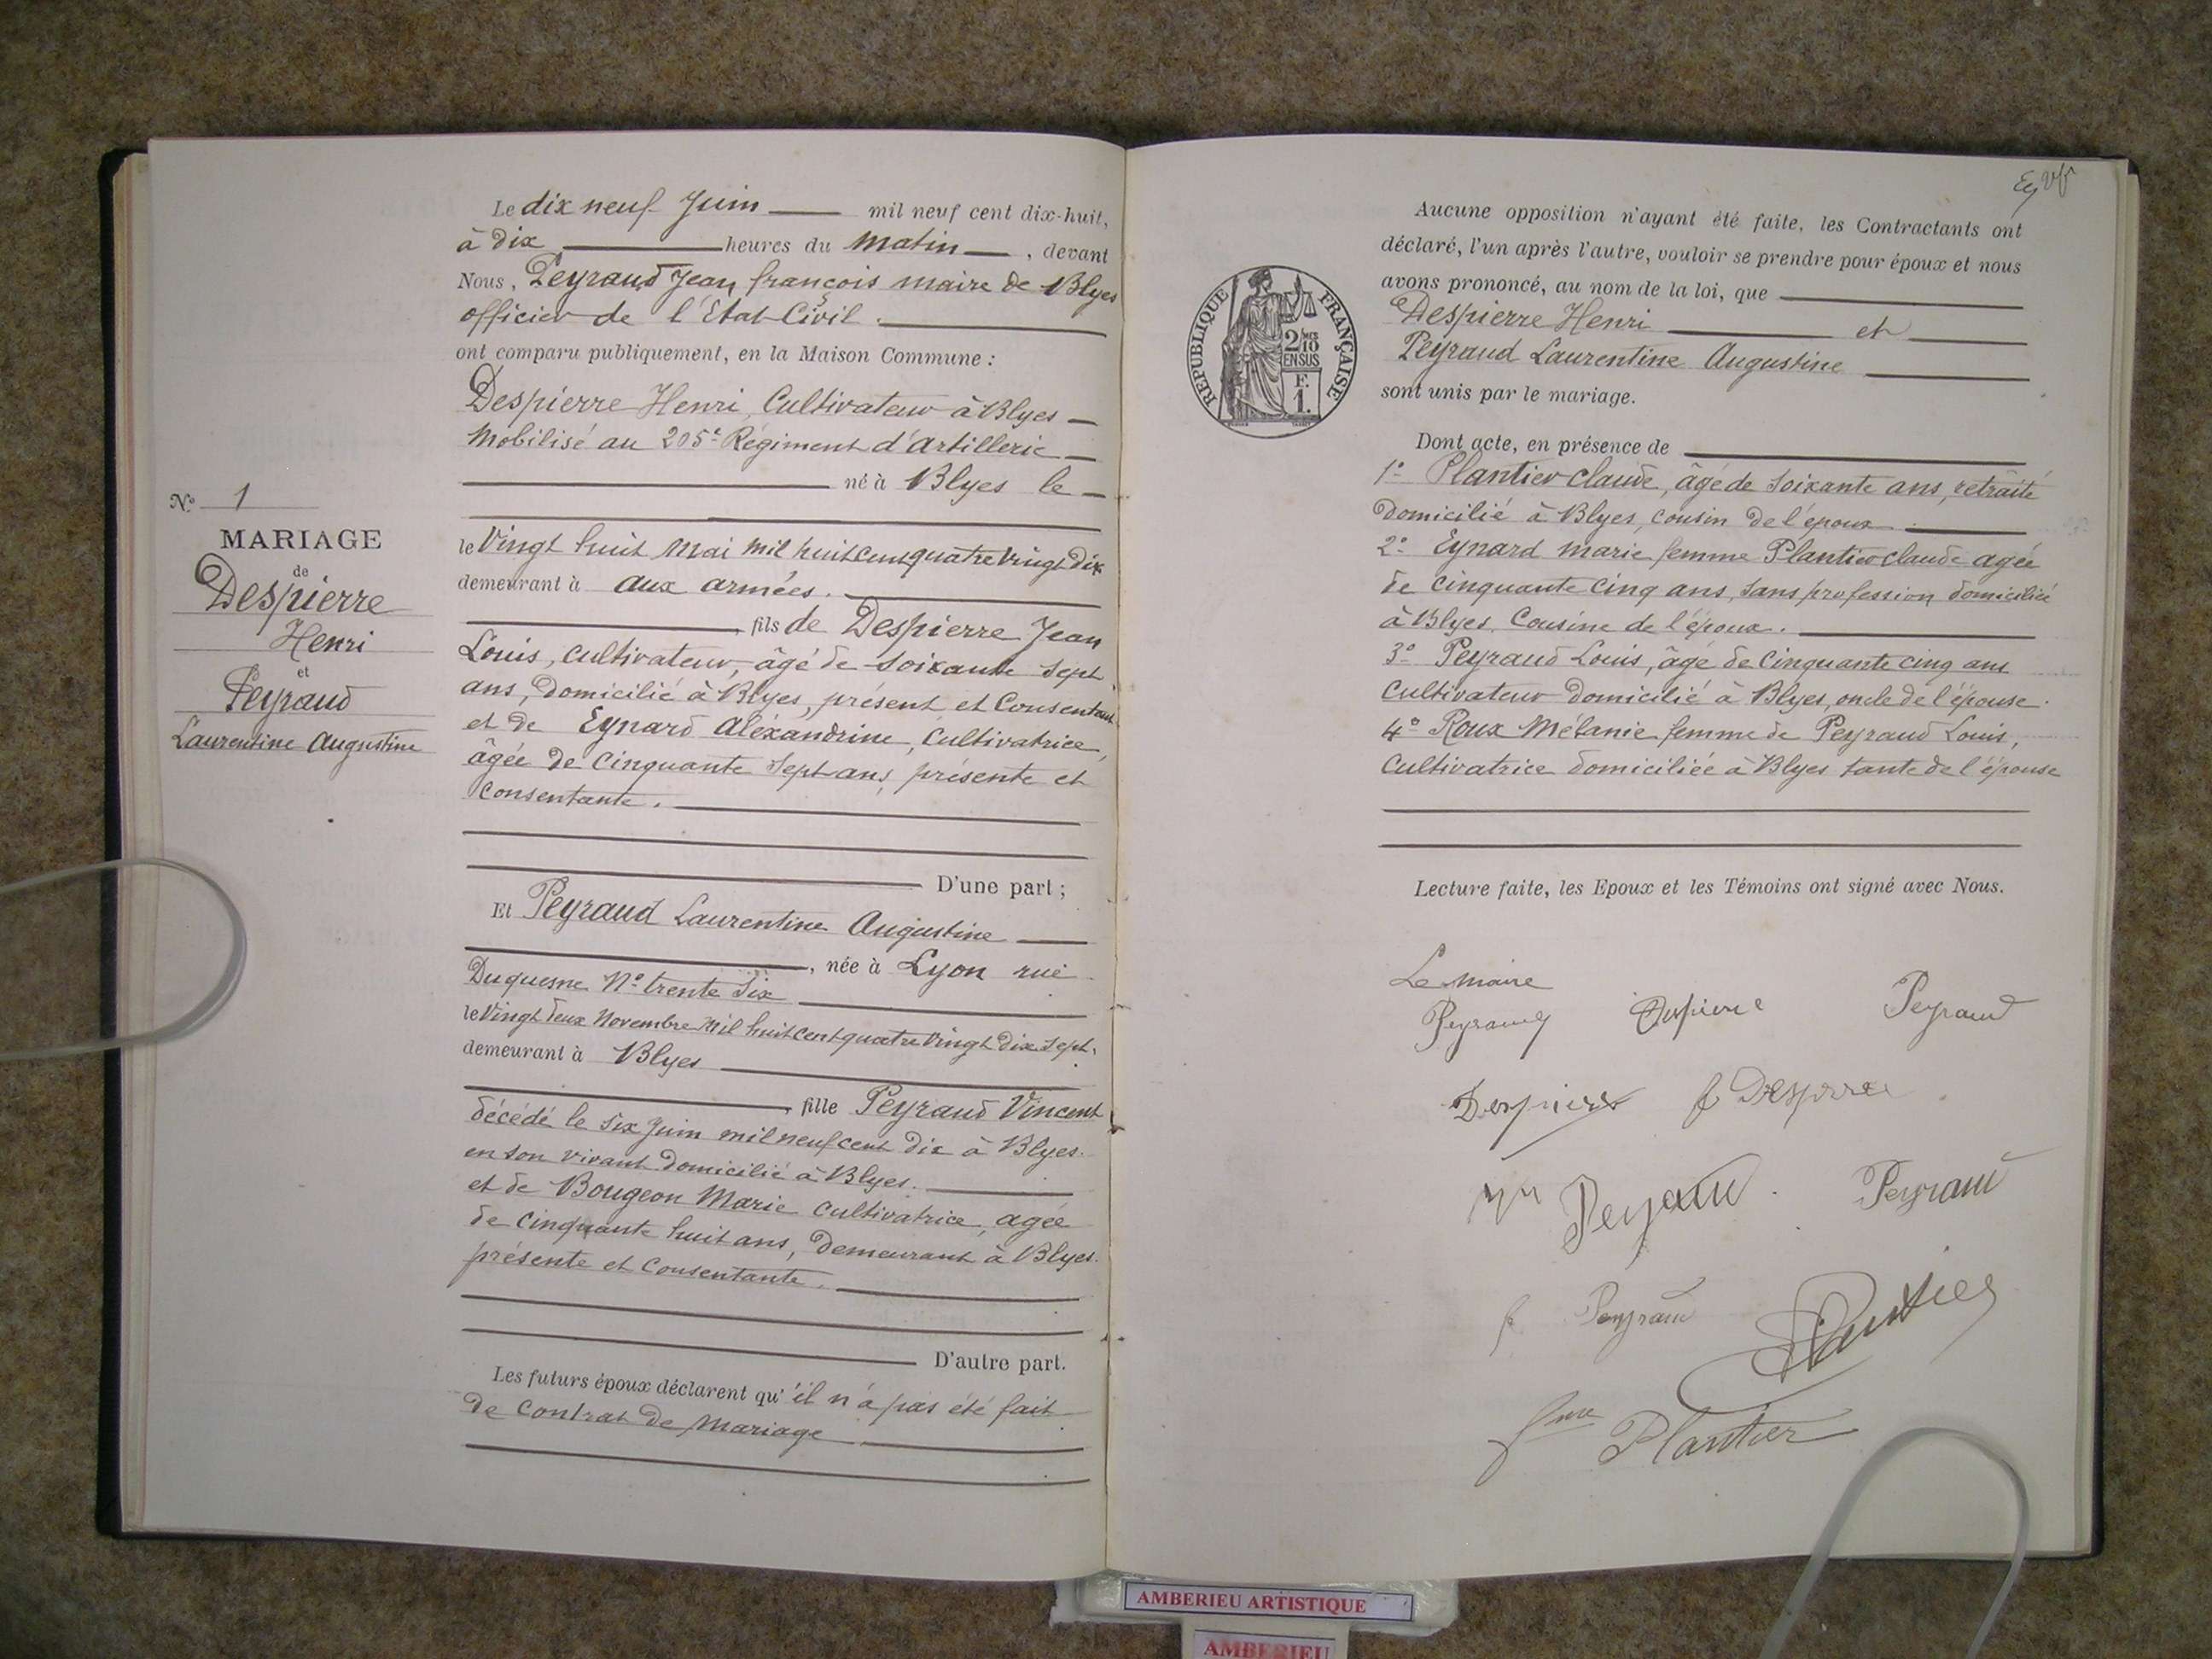 N° 1
MARIAGE
de
Despierre
Henri
et
Peyraud
Laurentine Augustine
Le dix neuf Juin mil neuf cent dix-huit,
à dix heures du matin, devant
Nous, Peyraud Jean françois maire de Blyes
officier de l'Etat-Civil.
ont comparu publiquement, en la Maison Commune :
Despierre Henri, Cultivateur à Blyes
Mobilisé au 205e Régiment d'Artillerie
né à Blyes le
le Vingt huit Mai mil huit cent quatre Vingt Dix
demeurant à aux armées.
, fils de Despierre Jean
Louis, cultivateur, âgé de soixante sept
ans, Domicilié à Blyes, présent et Consentant
et de Eynard Aléxandrine, Cultivatrice,
âgée de Cinquante Sept ans, présente et
consentante.
D'une part ;
Et Peyraud Laurentine Augustine
, née à Lyon rue
Duquesne N° trente Six
le Vingt Deux Novembre Mil huit cent quatre Vingt Dix Sept.
demeurant à Blyes
, fille Peyraud Vincent
décédé le six Juin mil neuf cent dix à Blyes.
en son vivant domicilié à Blyes.
et de Bougeon Marie Cultivatrice, agée
de cinquante huit ans, Demeurant à Blyes.
présente et Consentante.
D'autre part.
Les futurs époux déclarent qu'il n'a pas été fait
de Contrat de Mariage
Aucune opposition n'ayant été faite, les Contractants ont
déclaré, l'un après l'autre, vouloir se prendre pour époux et nous
avons prononcé, au nom de la loi, que
Despierre Henri et
Peyraud Laurentine Augustine
sont unis par le mariage.
Dont acte, en présence de
1° Plantier Claude, âgé de soixante ans, retraité
Domicilié à Blyes, cousin de l'époux.
2° Eynard marie femme Plantier Claude agée
de cinquante cinq ans, sans profession domiciliée
à Blyes. Cousine de l'époux.
3° Peyraud Louis, âgé de Cinquante cinq ans
Cultivateur Domicilié à Blyes, oncle de l'épouse.
4° Roux Mélanie femme de Peyraud Louis,
Cultivatrice domiciliée à Blyes tante de l'épouse
REPUBLIQUE FRANÇAISE
2/10
EN SUS
F.
1.
Lecture faite, les Epoux et les Témoins ont signé avec Nous.
Le Maire
Peyraud Despierre Peyraud
Despierre f Despierre
Peyraud Peyraud
f Peyraud Plantier
fme Plantier
AMBERIEU ARTISTIQUE
AMBERIEU